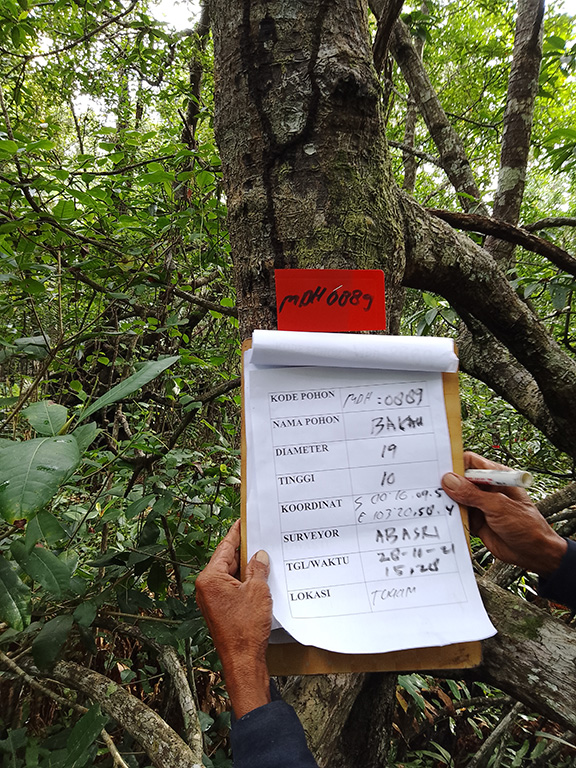 MDH 0889
KODE POHON MDH : 0889
NAMA POHON BAKAU
DIAMETER 19
TINGGI 10
KOORDINAT S 00 16.09.5
E 103 20.58.4
SURVEYOR ABASRI
TGL/WAKTU 28-11-21
15,28
LOKASI